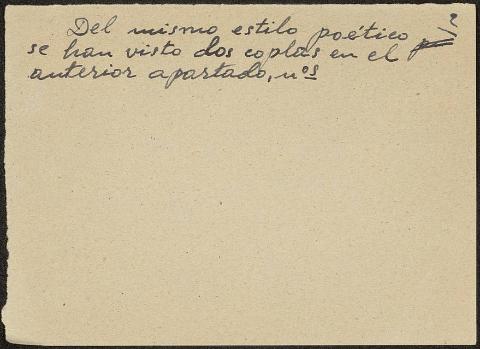 Del mismo estilo poético
se han visto dos coplas en el
anterior apartado, nºs